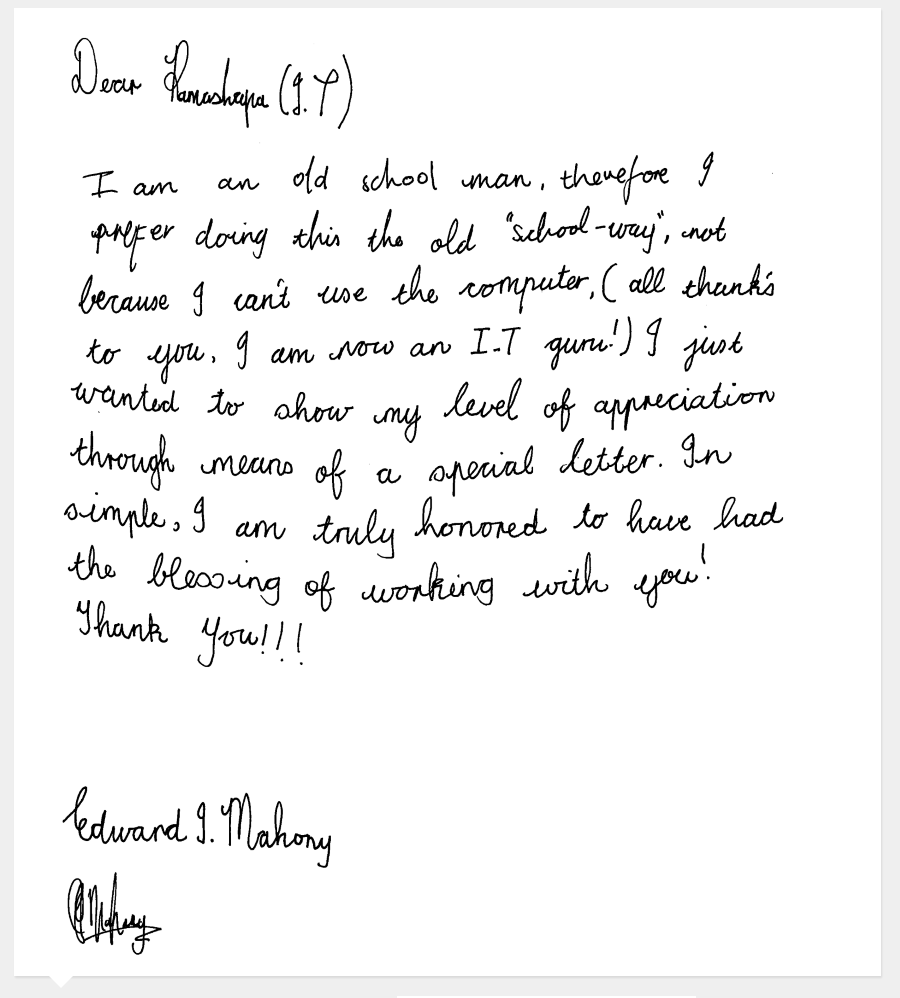 Dear Ramashapa (J.P)
I am an old school man, therefore I
prefer doing this the old "school-way", not
because I can't use the computer, ( all thank's
to you, I am now an I.T guru!) I just
wanted to show my level of appreciation
through means of a special letter. In
simple, I am truly honored to have had
the blessing of working with you!
Thank You!!!
Edward J. Mahony